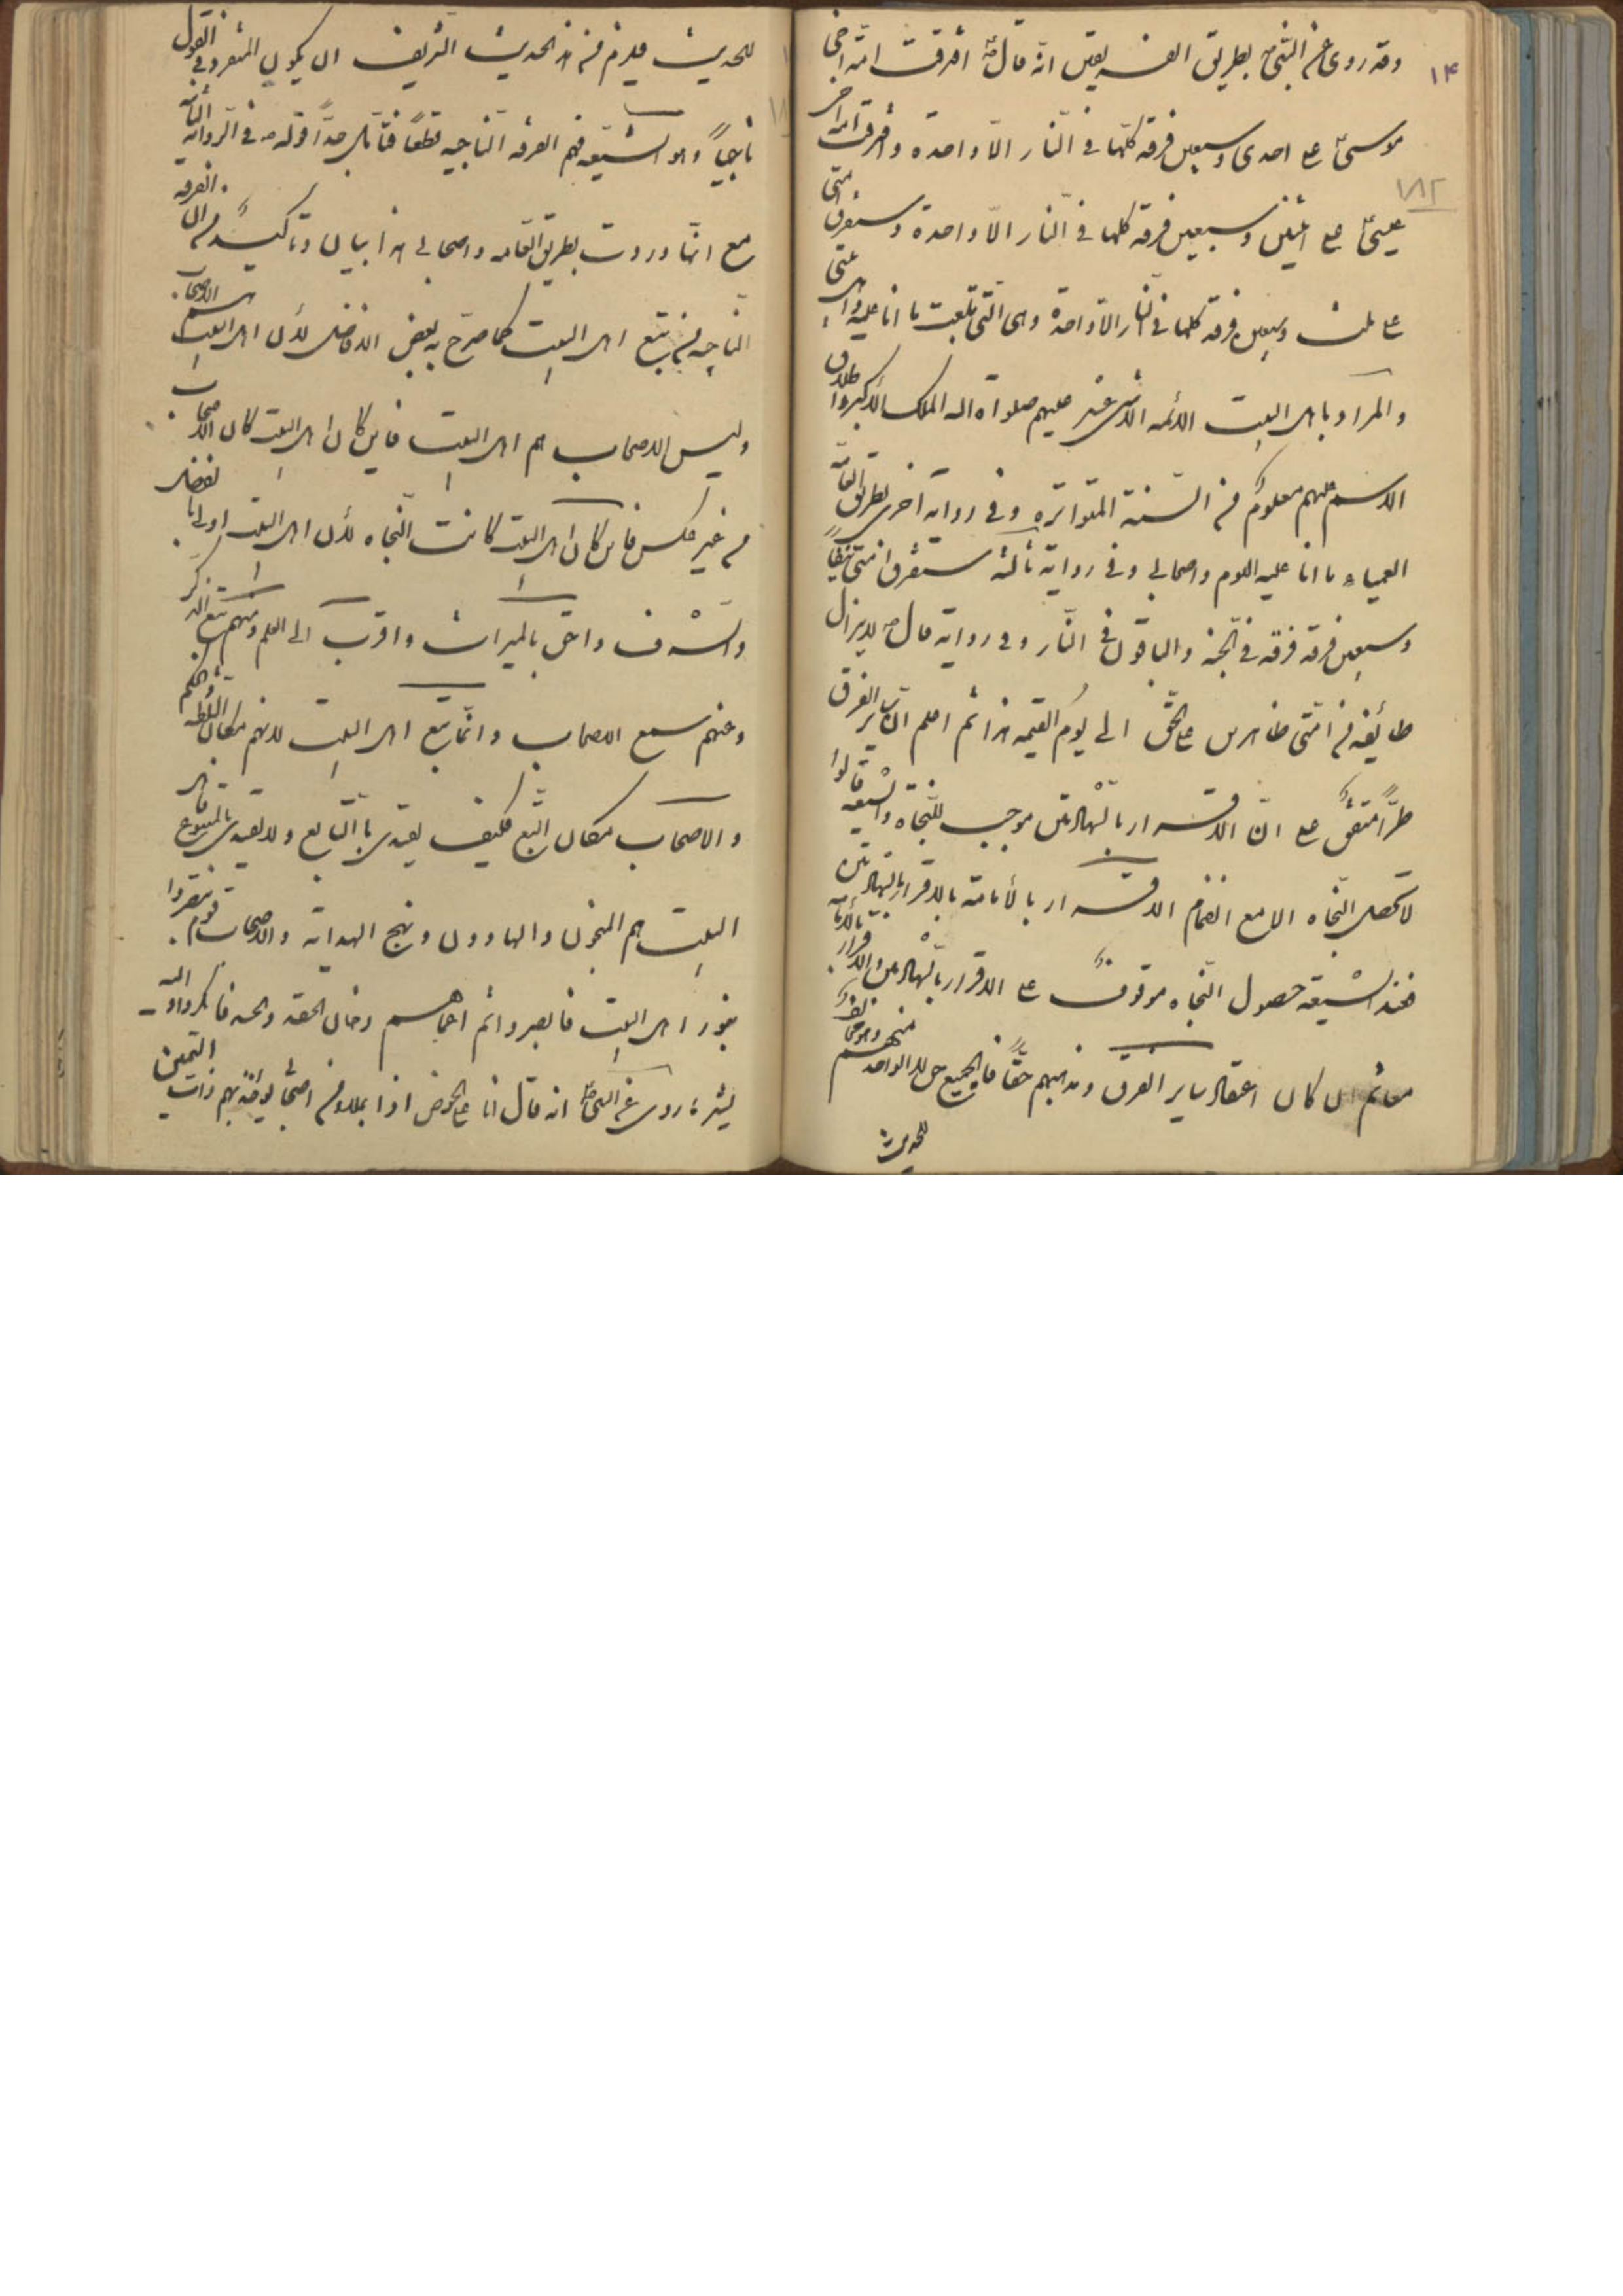 ۱۴
۱۸۲
وقد روی عن النبی بطریق الفریقین انه قال افترقت امة اخی
موسی ع احدی وسبعین فرقه کلها فی النار الا واحده وافترقت امة اخی
عیسی ع اثنین وسبعین فرقه کلها فی النار الا واحدة وستفرق امتی
ع ثلث وسبعین فرقه کلها فی النار الا واحدة وهی التی تبعت ما انا علیه واهل بیتی
والمراد باهل البیت الائمه الاثنی عشر علیهم صلواة الله الملک الاکبر واطلاق
الاسم علیهم معلوم من السنة المتواتره وفی روایة اخری بطریق العامة
العمیاء ما انا علیه الیوم واصحابی وفی روایة ثالثه ستفرق امتی نیفا
وسبعین فرقه فرقه فی الجنه والباقون فی النار وفی روایة قال لایزال
طائفه من امتی ظاهرین ع الحق الی یوم القیمه هذا ثم اعلم ان سایر الفرق
طرا متفق ع ان الاقرار بالشهادتین موجب للنجاة والشیعه قالوا
لا تحصل النجاه الا مع انضمام الاقرار بالأمامة بالاقرار بالشهادتین
فعند الشیعه حصول النجاه موقوف ع الاقرار بالشهادتین والاقرار بالامامة
ثم ان کان اعتقاد سایر الفرق ومذهبهم حقا فالجمیع حق لا الواحد منهم
للحدیث
للحدیث فیلزم من هذ الحدیث الشریف ان یکون المتفرد فی القول
ناجیا وهو الشیعه فهم الفرقه الناجیه قطعا فتأمل جدا قوله فی الروایة الثانیة
مع انها وردت بطریق العامه واصحابی هذا بیان وتاکید من ان الفرقه
الناجیه من یتبع اهل البیت کما صرح به بعض الافاضل لأن اهل البیت هم الاصحاب
ولیس الاصحاب هم اهل البیت فاین کان اهل البیت کان الاصحاب
من غیر عکس فاین کان اهل البیت کانت النجاه لأن اهل البیت اولی بالفضل
والشرف واحق بالمیراث واقرب الی العلم ومنهم یتبع الذکر
وعنهم سمع الاصحاب وانما یتبع اهل البیت لانهم مکان
والاصحاب مکان التبع فکیف یقتدی بالتابع ولا یقتدی بالمتبوع فاهل
البیت هم المنجون والهادون ونهج الهدایه والاصحاب قوم تبصروا
بنور اهل البیت فابصروا ثم اعماهم دخان الحقد والحسد فانکروا
یشیر ما روی عن النبی انه قال انا ع الحوض اذا بملاء من اصحابی یؤخذ بهم ذات الیمین